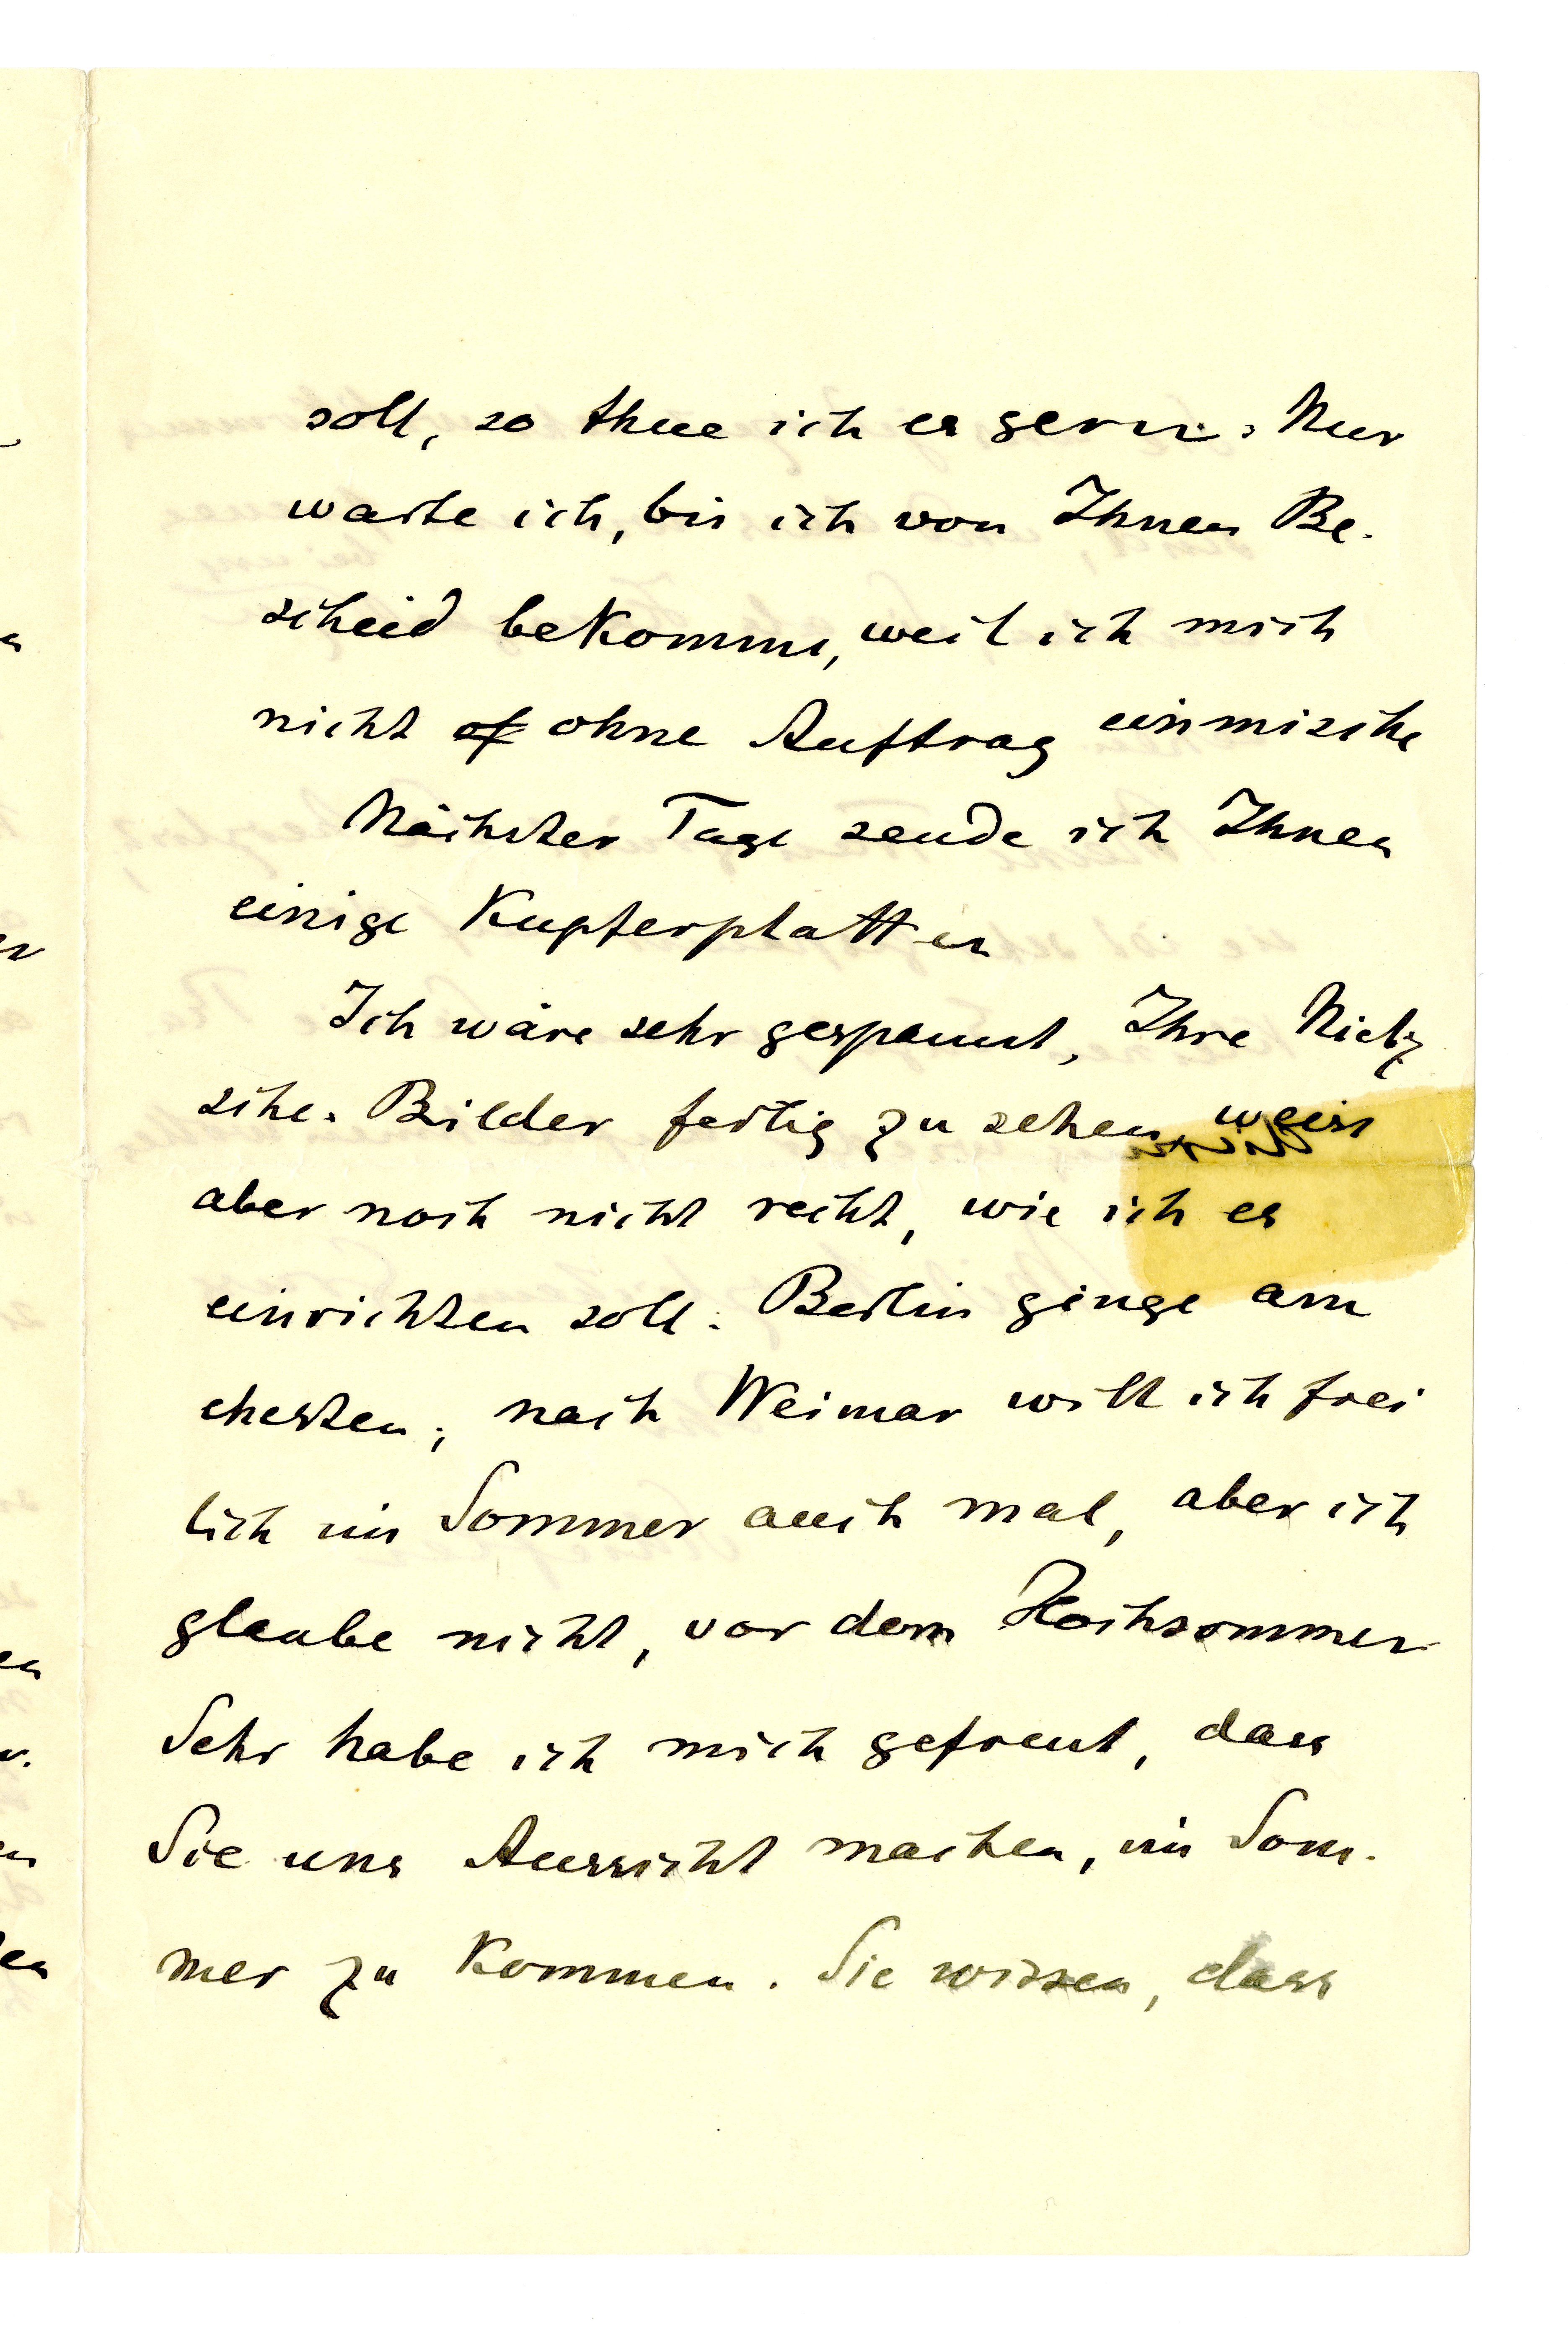 soll, so thue ich es gern. Nur
warte ich, bis ich von Ihnen Be-
scheid bekomme, weil ich mich
nicht of ohne Auftrag einmische
Nächster Tage sende ich Ihnen
einige Kupferplatten
Ich wäre sehr gespannt, Ihre Nietz
sche-Bilder fertig zu sehen, weiss
aber noch nicht recht, wie ich es
einrichten soll. Berlin ginge am
ehesten; nach Weimar will ich frei
lich im Sommer auch mal, aber ich
glaube nicht, vor dem Hochsommer
Sehr habe ich mich gefreut, dass
Sie uns Aussicht machen, im Som-
mer zu kommen. Sie wissen, dass